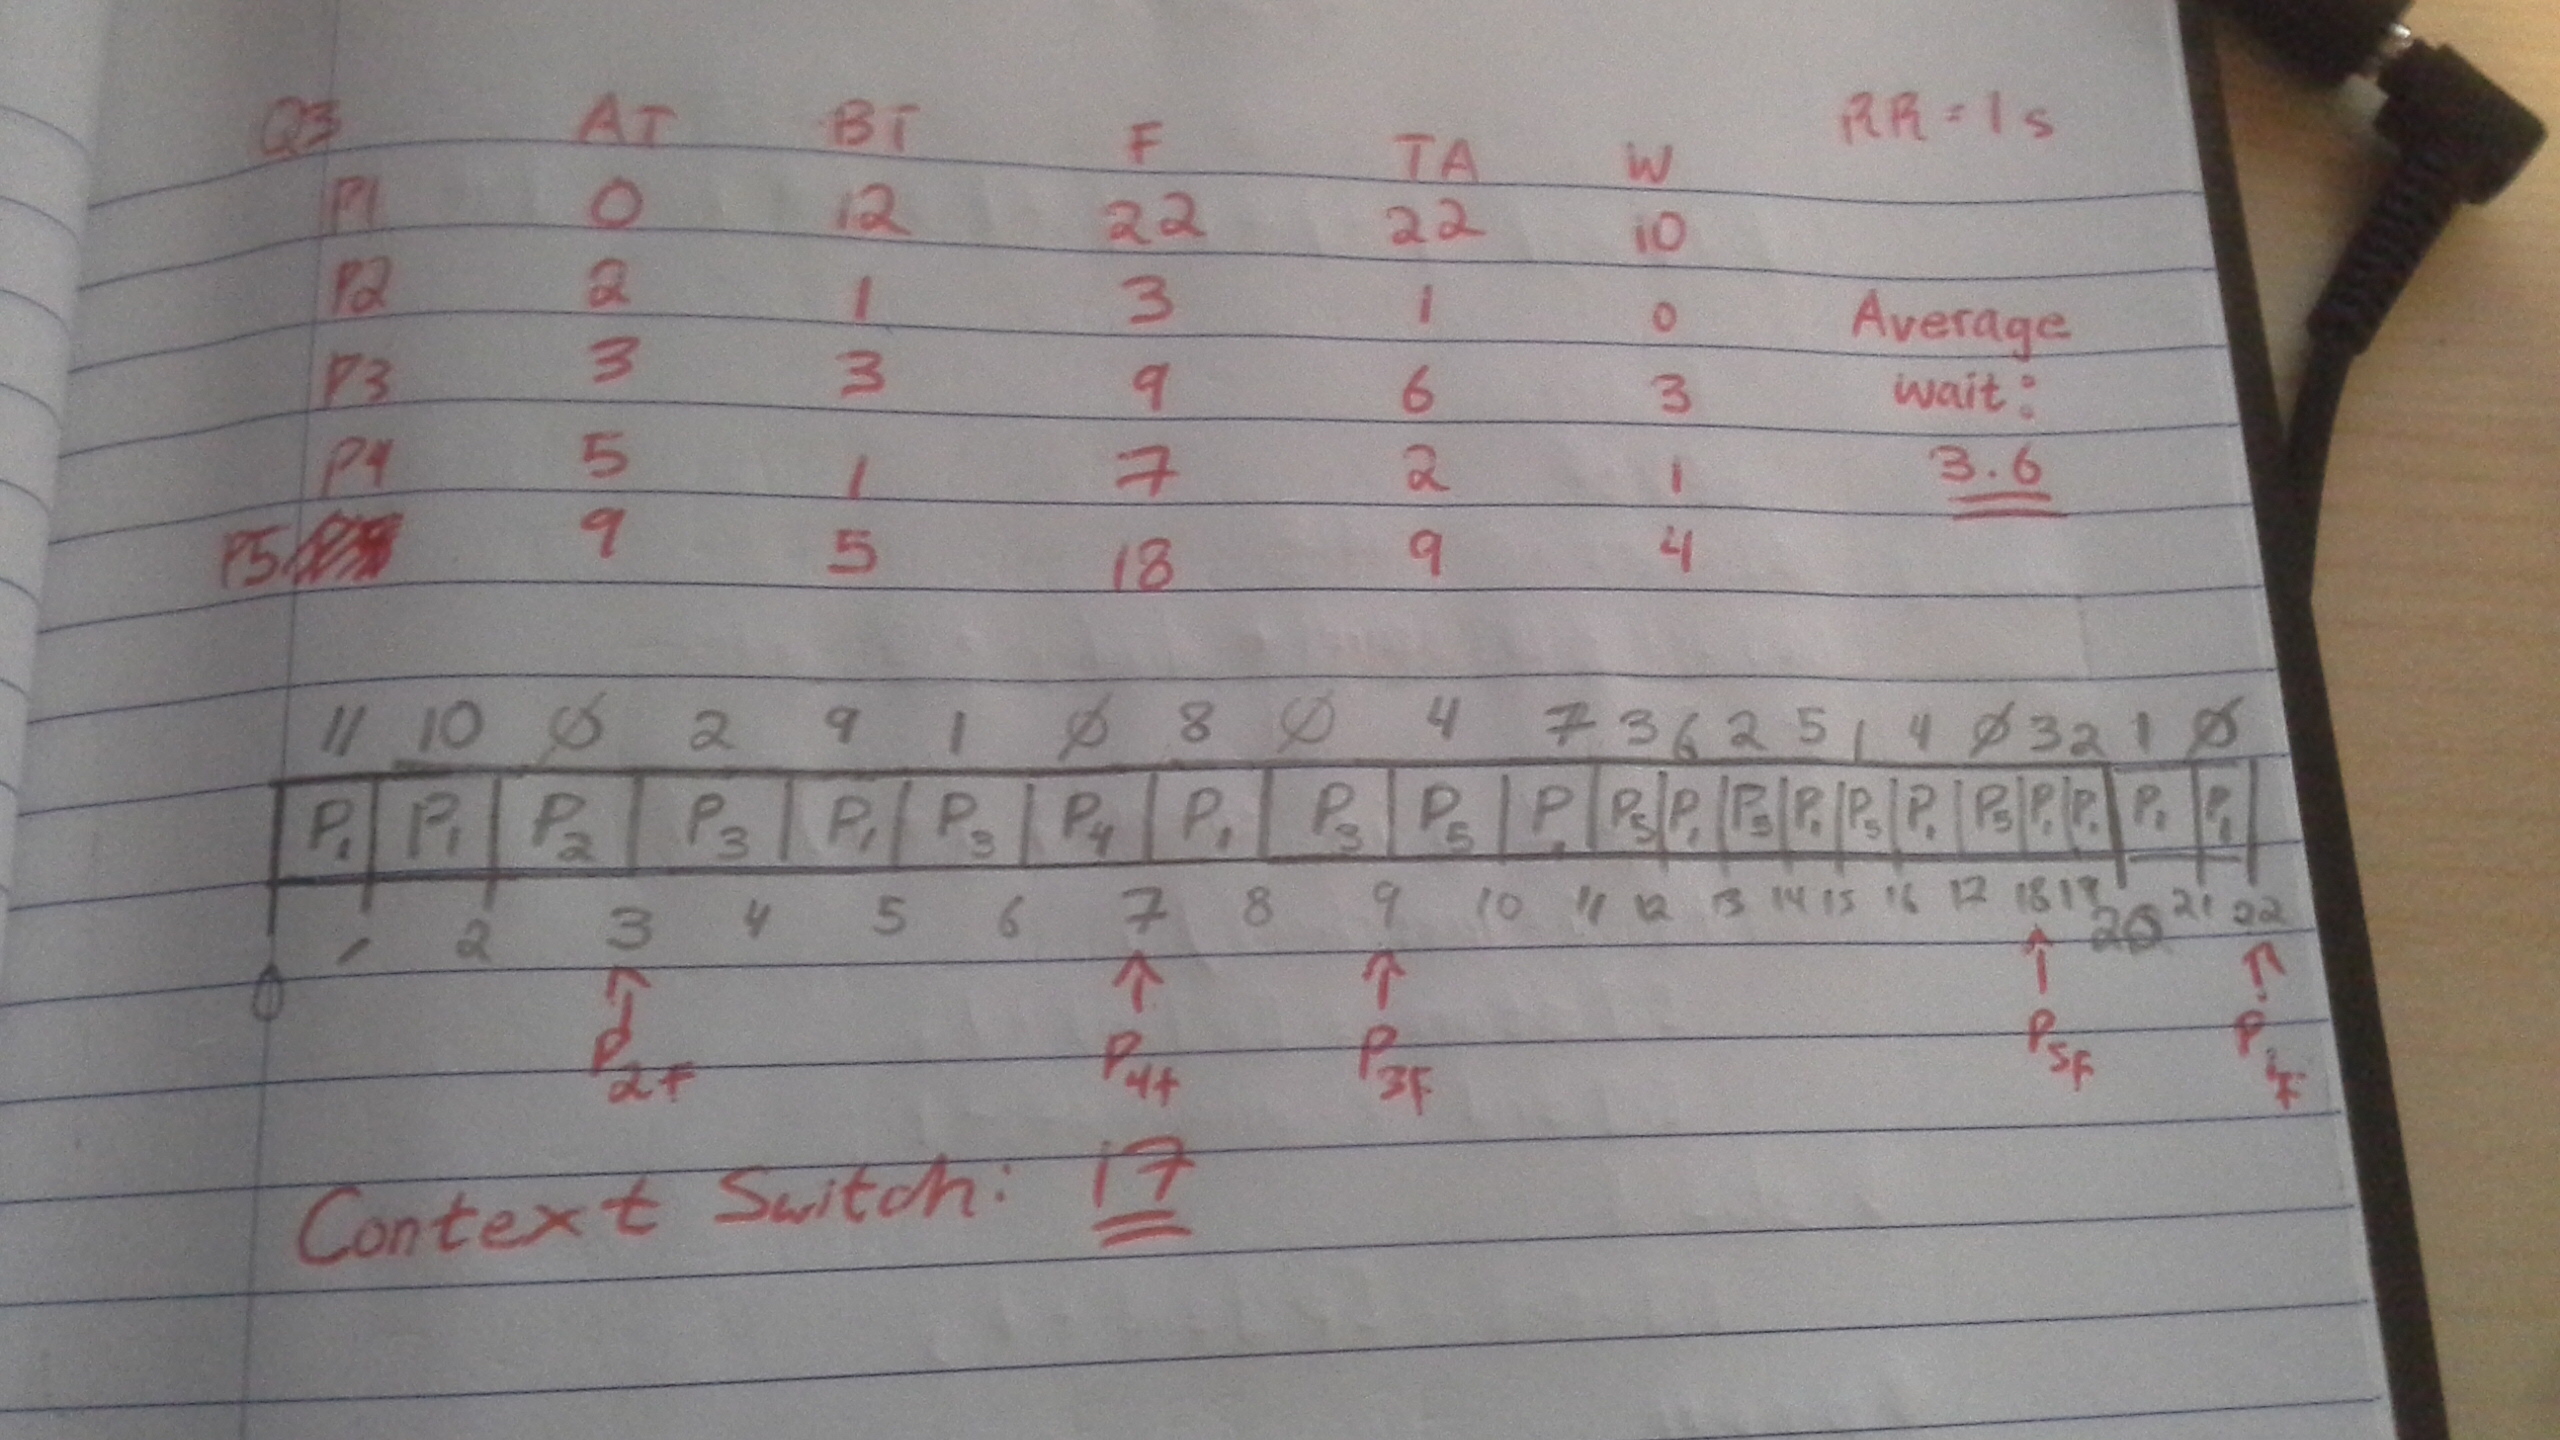 Q3 AT BT F TA W RR = 1 s
P1 0 12 22 22 10
P2 2 1 3 1 0 Average
P3 3 3 9 6 3 wait:
P4 5 1 7 2 1 3.6
P5 9 5 18 9 4
11 10 Ø 2 9 1 Ø 8 Ø 4 7 3 6 2 5 1 4 Ø 3 2 1 Ø
P1 P1 P2 P3 P1 P3 P4 P1 P3 P5 P1 P5 P1 P5 P1 P5 P1 P5 P1 P1 P1 P1
0 1 2 3 4 5 6 7 8 9 10 11 12 13 14 15 16 17 18 19 20 21 22
P2F P4F P3F P5F P1F
Context Switch: 17